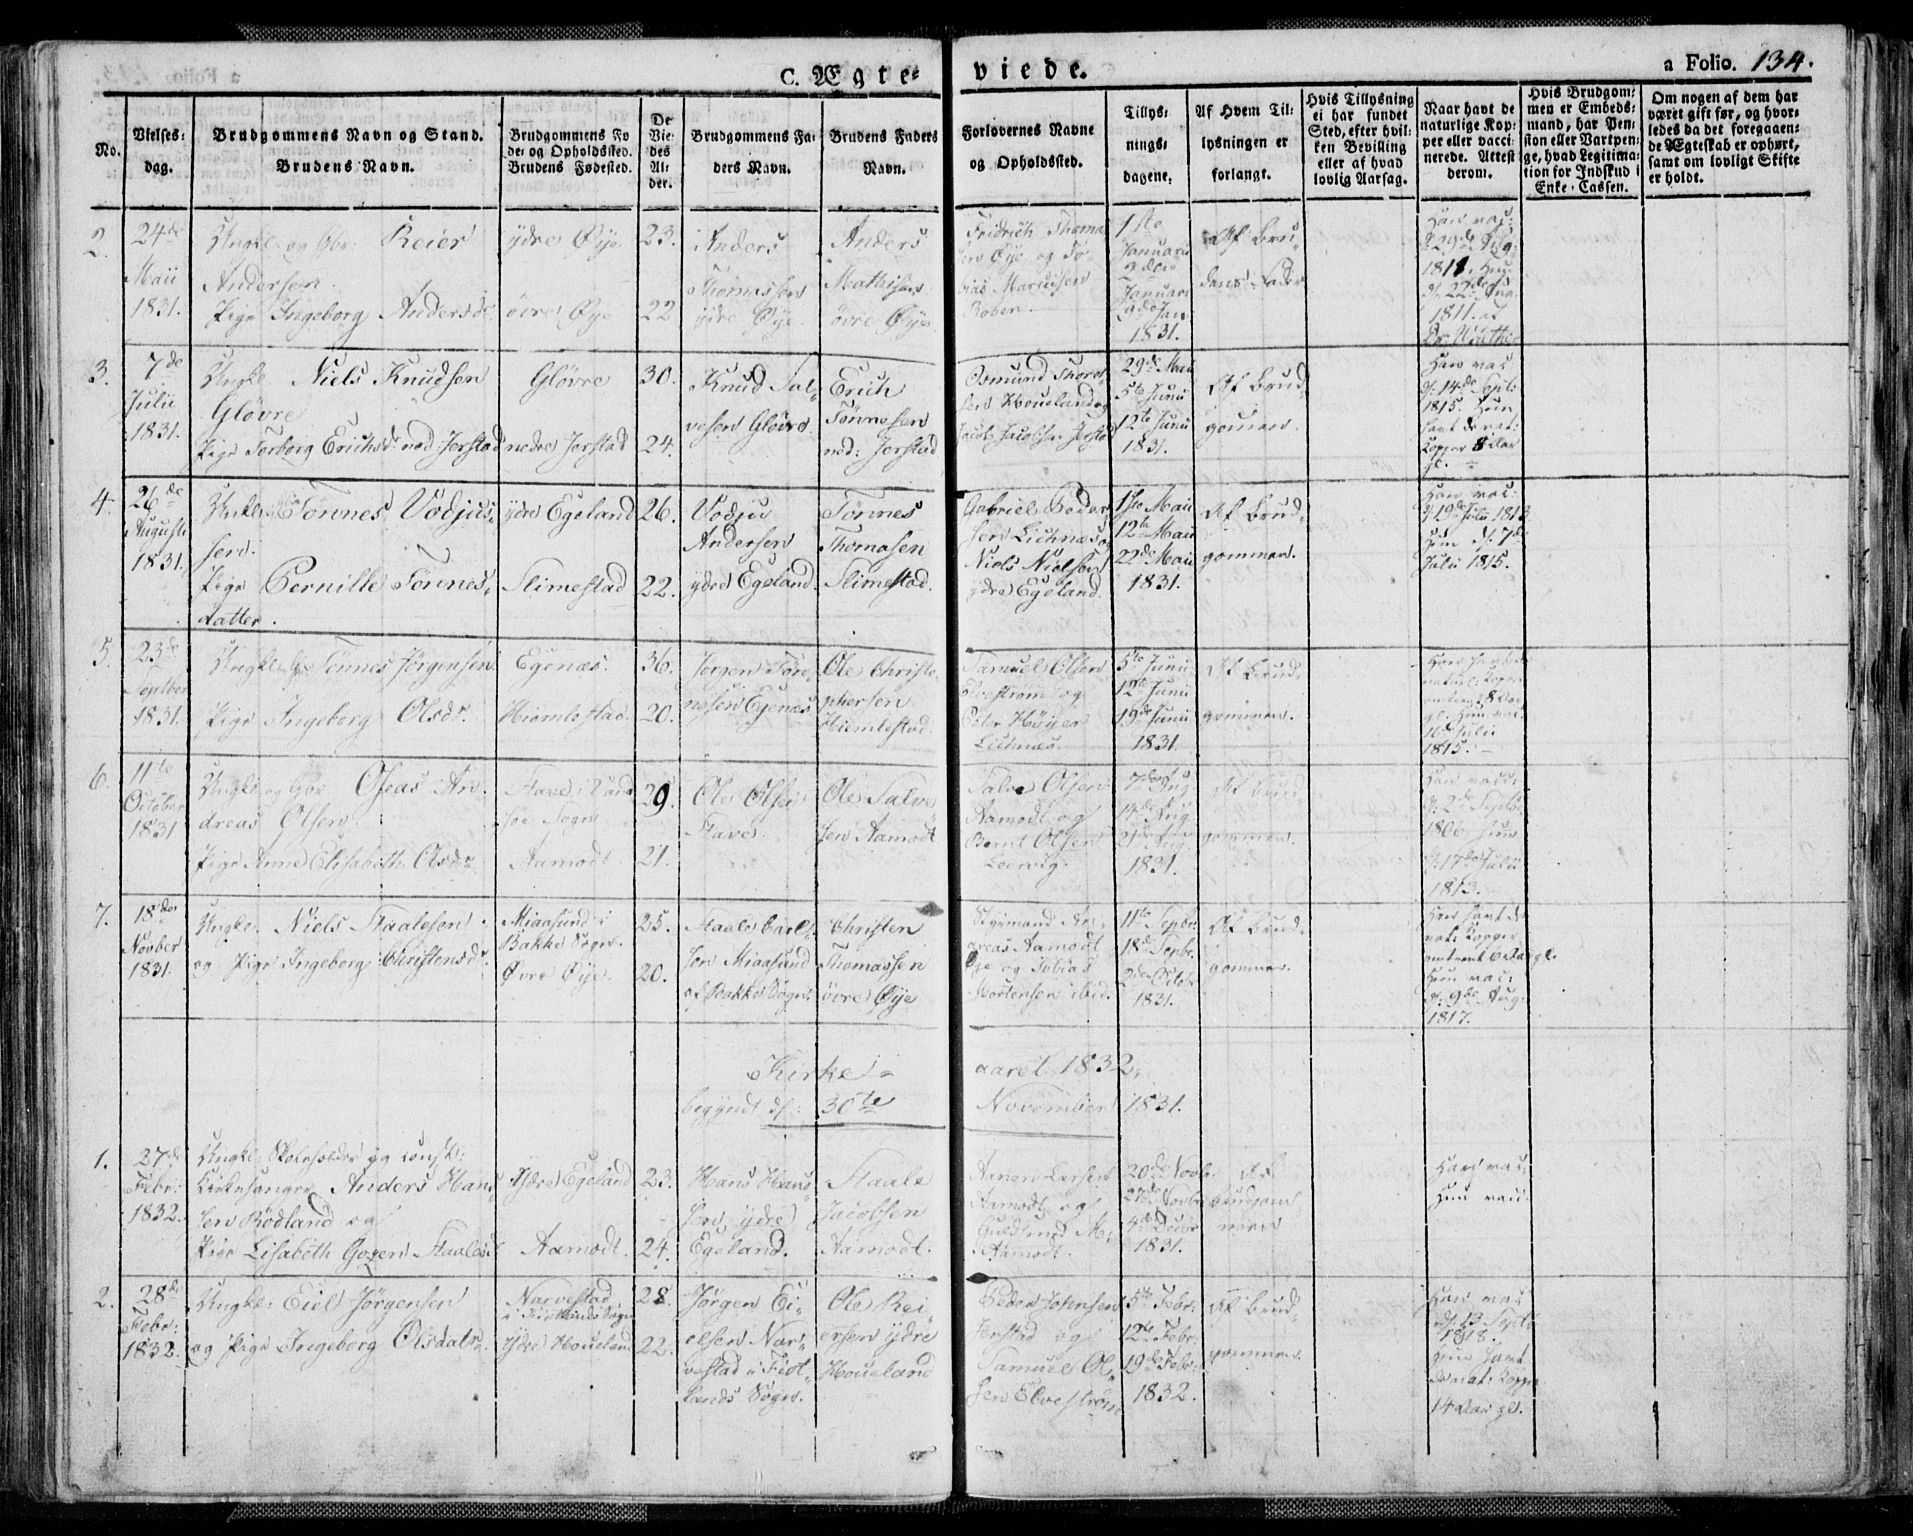 C. Ægte-
viede.
a Folio. 134.
No.
Vielses-
dag.
Brudgommens Navn og Stand.
Brudens Navn.
Brudgommens Fø
de- og Opholdssted.
Brudens Fødested.
De
Vie-
des
Al-
der.
Brudgommens Fa-
ders Navn.
Brudens Faders
Navn.
Forlovernes Navne
og Opholdssted.
Tillys-
nings-
dagene.
Af Hvem Til-
lysningen er
forlangt.
Hvis Tillysning
ei har fundet
Sted, efter hvil-
ken Bevilling
eller af hvad
lovlig Aarsag.
Naar havt de
naturlige Kop-
per eller vacci-
nerede. Attest
derom.
Hvis Brudgom-
men er Embeds-
mand, har Pen-
sion eller Vartpen-
ge, hvad Legitima-
tion for Indskud i
Enke-Cassen.
Om nogen af dem har
været gift før, og hvor-
ledes da det foregaaen-
de Ægteskab er ophørt,
samt om lovligt Skifte
er holdt.
2.
24de
Maii
1831.
Ungk. og Gbr. Reier
Andersen
Pige Ingeborg Andersdr
ydre Øye
øvre Øye
23.
22
Anders
Thomassen
ydre Øye.
Anders
Mathisen
øvre Øye
Fridrich Thoma
sen Øye og To-
bias
1ste
Januarii
2den
Januari
9de Jan
1831.
Af Bru-
dens Fader
Han vac:
d. 29de Aug.
1811. Hun
d. 22de Aug.
1811. af
3.
7de
Julii
1831.
Ungk. Niels Knudsen
Gløvre
Pige Torborg Ericksdr ned Jerstad
Gløvre
nedre Jerstad
30.
24.
Knud Sal-
vesen Gløvre
Erich
Tønnesen
ned: Jerstad
Osmund Thord-
sen Houeland og
Jacob Jacobsen Jerstad
29de Maii
5te Junii
12te Junii
1831.
Af Brud-
gommen.
Han vac
d. 14de Sept:
1815. Hun
havt de nat:
Kopper 8 Aar
gl.
4.
26de
Augusti
1831.
Ungk. Tønnes Vodjus-
sen.
Pige Pernille Tønnes-
datter.
ydre Egeland
Slimestad
26.
22.
Vodju
Andersen
ydre Egeland.
Tønnes
Thomasen
Slimestad.
Gabriel Peder-
sen Lichnæs og
Niels Nielsen
ydre Egeland.
1ste Maii
12te Maii
22de Maii
1831.
Af Brud-
gommen.
Han vac:
d. 19de Julii 1813.
Hun d. 7de
Julii 1815.
5.
23de
Septber
1831.
Ungk. Tønnes Jørgensen
Pige Ingeborg Olsdr.
Egenæs.
Hiemlestad.
36.
20.
Jørgen Tøn-
nesen Egenæs
Ole Christo-
phersen
Hiemlestad.
Samuel Olsen
Elvestrøm og
Peder Høyer
Lichnæs.
5te Junii
12te Junii
19de Junii
1831.
Af Brud-
gommen.
Han havt de
naturl: Kopper
omtrent 8 Aar
gl. Hun vac.
16de Julii
1815.
6.
11te
October
1831
Ungk. og Gbr Oseas An-
dreas Olsen.
Pige Anne Elisabeth Olsdr
Stave i
Sogn
Aamodt.
29.
21.
Ole Olsen
Stave.
Ole Salve
sen Aamodt
Salve Olsen
Aamodt og
Bernt Olsen
Leervig.
7de Aug
14de Aug
21de Aug.
1831.
Af Brud-
gommen.
Han vacc:
d. 2de Septb
1806. Hun
d. 17de Julii
1813.
7.
18de
Novber
1831.
Ungk. Niels Staalesen
og Pige Ingeborg Christensdr.
Miaasund i
Bakke Sogn.
Øvre Øye.
25.
20.
Staale Carl-
sen Miaasund
af Bakke Sogn.
Christen
Thomassen
øvre Øye
Styrmand An-
dreas Aamodt
Øye og Tobias
Mortensen ibid.
11te Septbr
18de Septbr.
2den Octbr.
1831.
Af Brud-
gommen.
Han havt de
nat: Kopper
omtrent 6 Aar gl.
Hun vac:
d. 9de Aug:
1817.
Kirke-
aaret 1832.
begyndt d. 30te
November 1831.
1.
27de
Febr:
1832.
Ungk. Skoleholder og const:
Kirkesanger Anders Hans
sen Rødland og
Pige Lisabeth Goren Staalesdr
Ydre Egeland
Aamodt.
23.
24.
Hans Hans-
sen, ydre
Egeland.
Staale
Jacobsen
Aamodt.
Aanen Larsen
Aamodt og
Guldsmed
Aamodt.
20de Novbr
27de Novbr
4de Decbr
1831.
Af
Brudgom-
men
Han vac:
Hun vac:
2.
28de
Febr:
1832.
Ungk: Eiel Jørgensen
og Pige Ingeborg Olsdatr.
Narvestad
i Fiotlands Sogn
Ydre Houeland
28.
22.
Jørgen Ei-
elsen Nar-
vestad i Fiot-
lands Sogn.
Ole Rei-
ersen ydre
Houeland
Peder Johnsen
Jerstad og
Samuel Ol-
sen Elvestrøm
5te Febr:
12te Febr:
19de Febr:
1832.
Af Brud-
gommen.
Han vac
d. 13 Septb
1818.
Hun havt
de nat: Kopper
14 Aar gl.